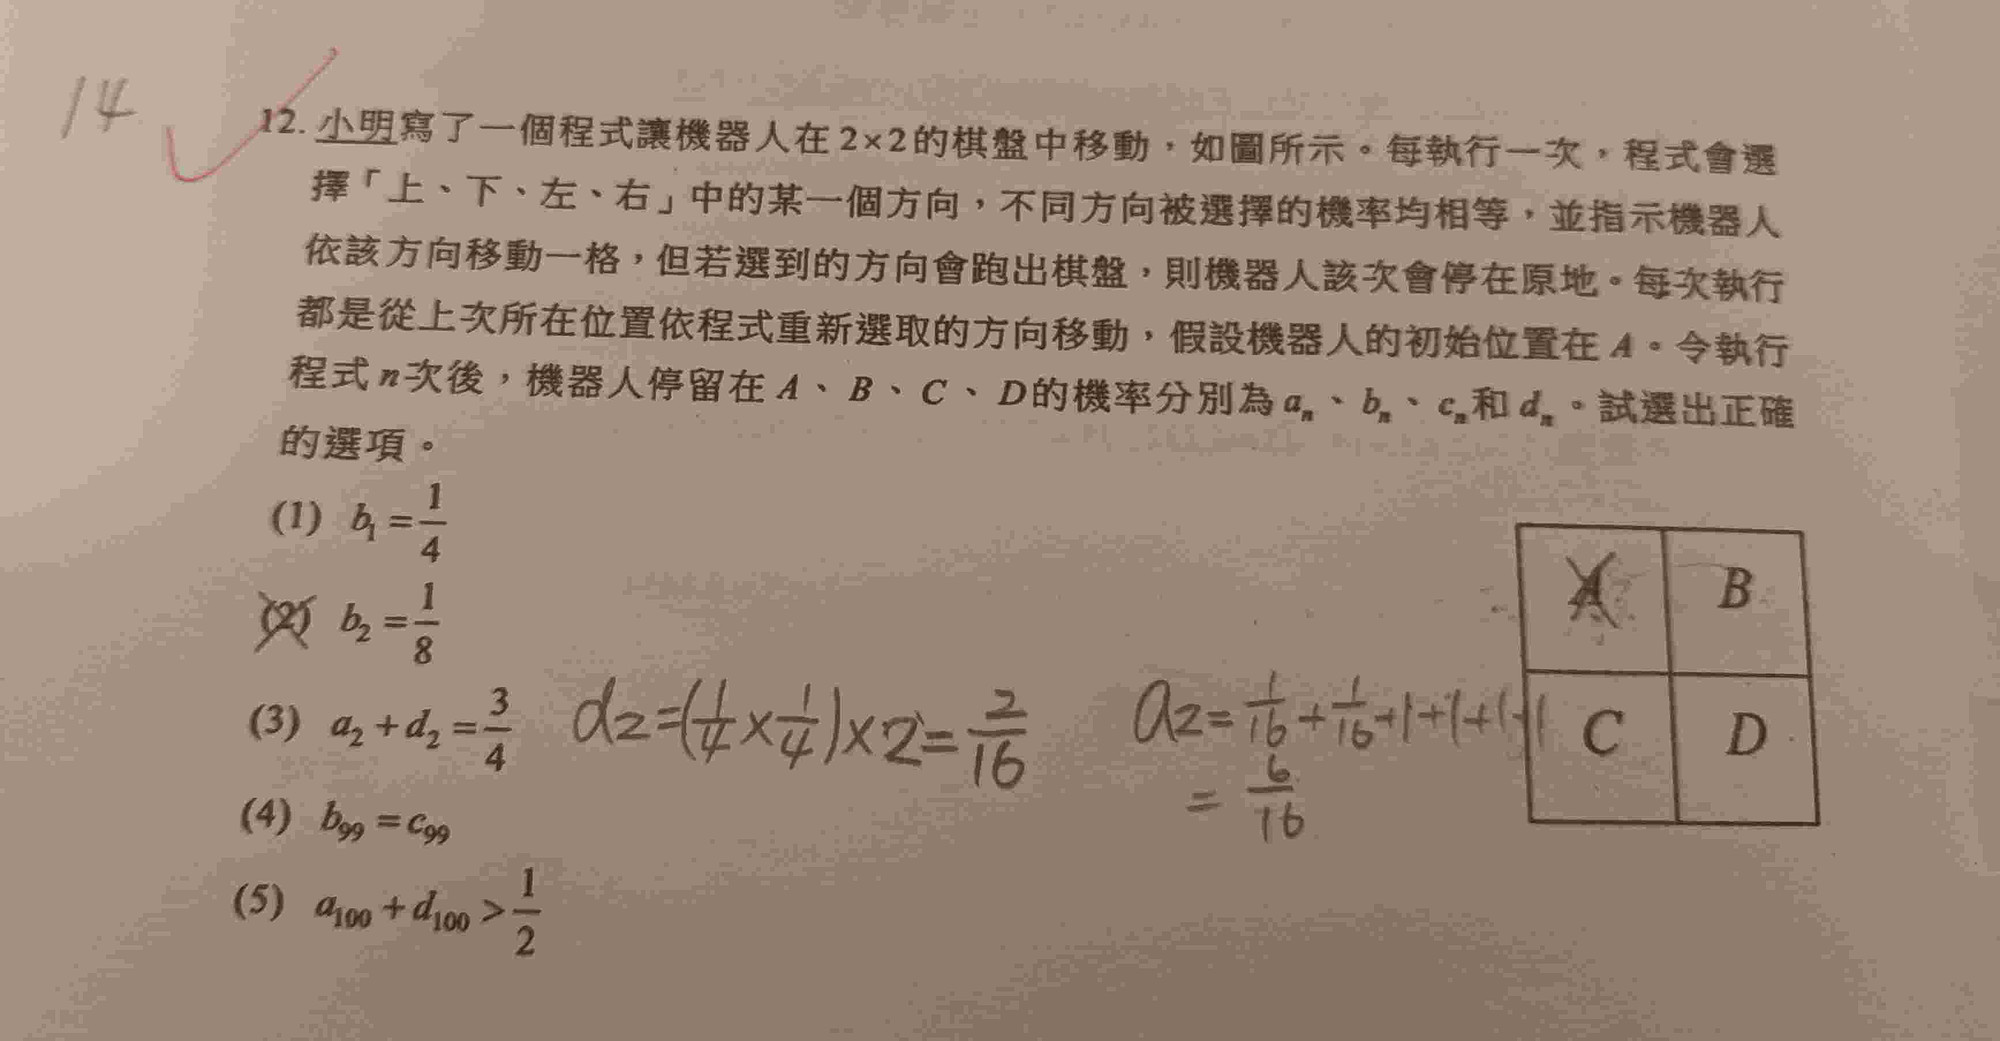 14
12. 小明寫了一個程式讓機器人在2×2的棋盤中移動,如圖所示。每執行一次,程式會選
擇「上、下、左、右」中的某一個方向,不同方向被選擇的機率均相等,並指示機器人
依該方向移動一格,但若選到的方向會跑出棋盤,則機器人該次會停在原地。每次執行
都是從上次所在位置依程式重新選取的方向移動,假設機器人的初始位置在 A。令執行
程式 n次後,機器人停留在 A、B、C、D的機率分別為 aₙ、bₙ、cₙ和 dₙ。試選出正確
的選項。
(1) b₁ = 1/4
(2) b₂ = 1/8
(3) a₂ + d₂ = 3/4
d₂=(1/4×1/4)×2=2/16
a₂=1/16+1/16+1+1+1+1
= 6/16
(4) b₉₉ = c₉₉
(5) a₁₀₀ + d₁₀₀ > 1/2
A B
C D